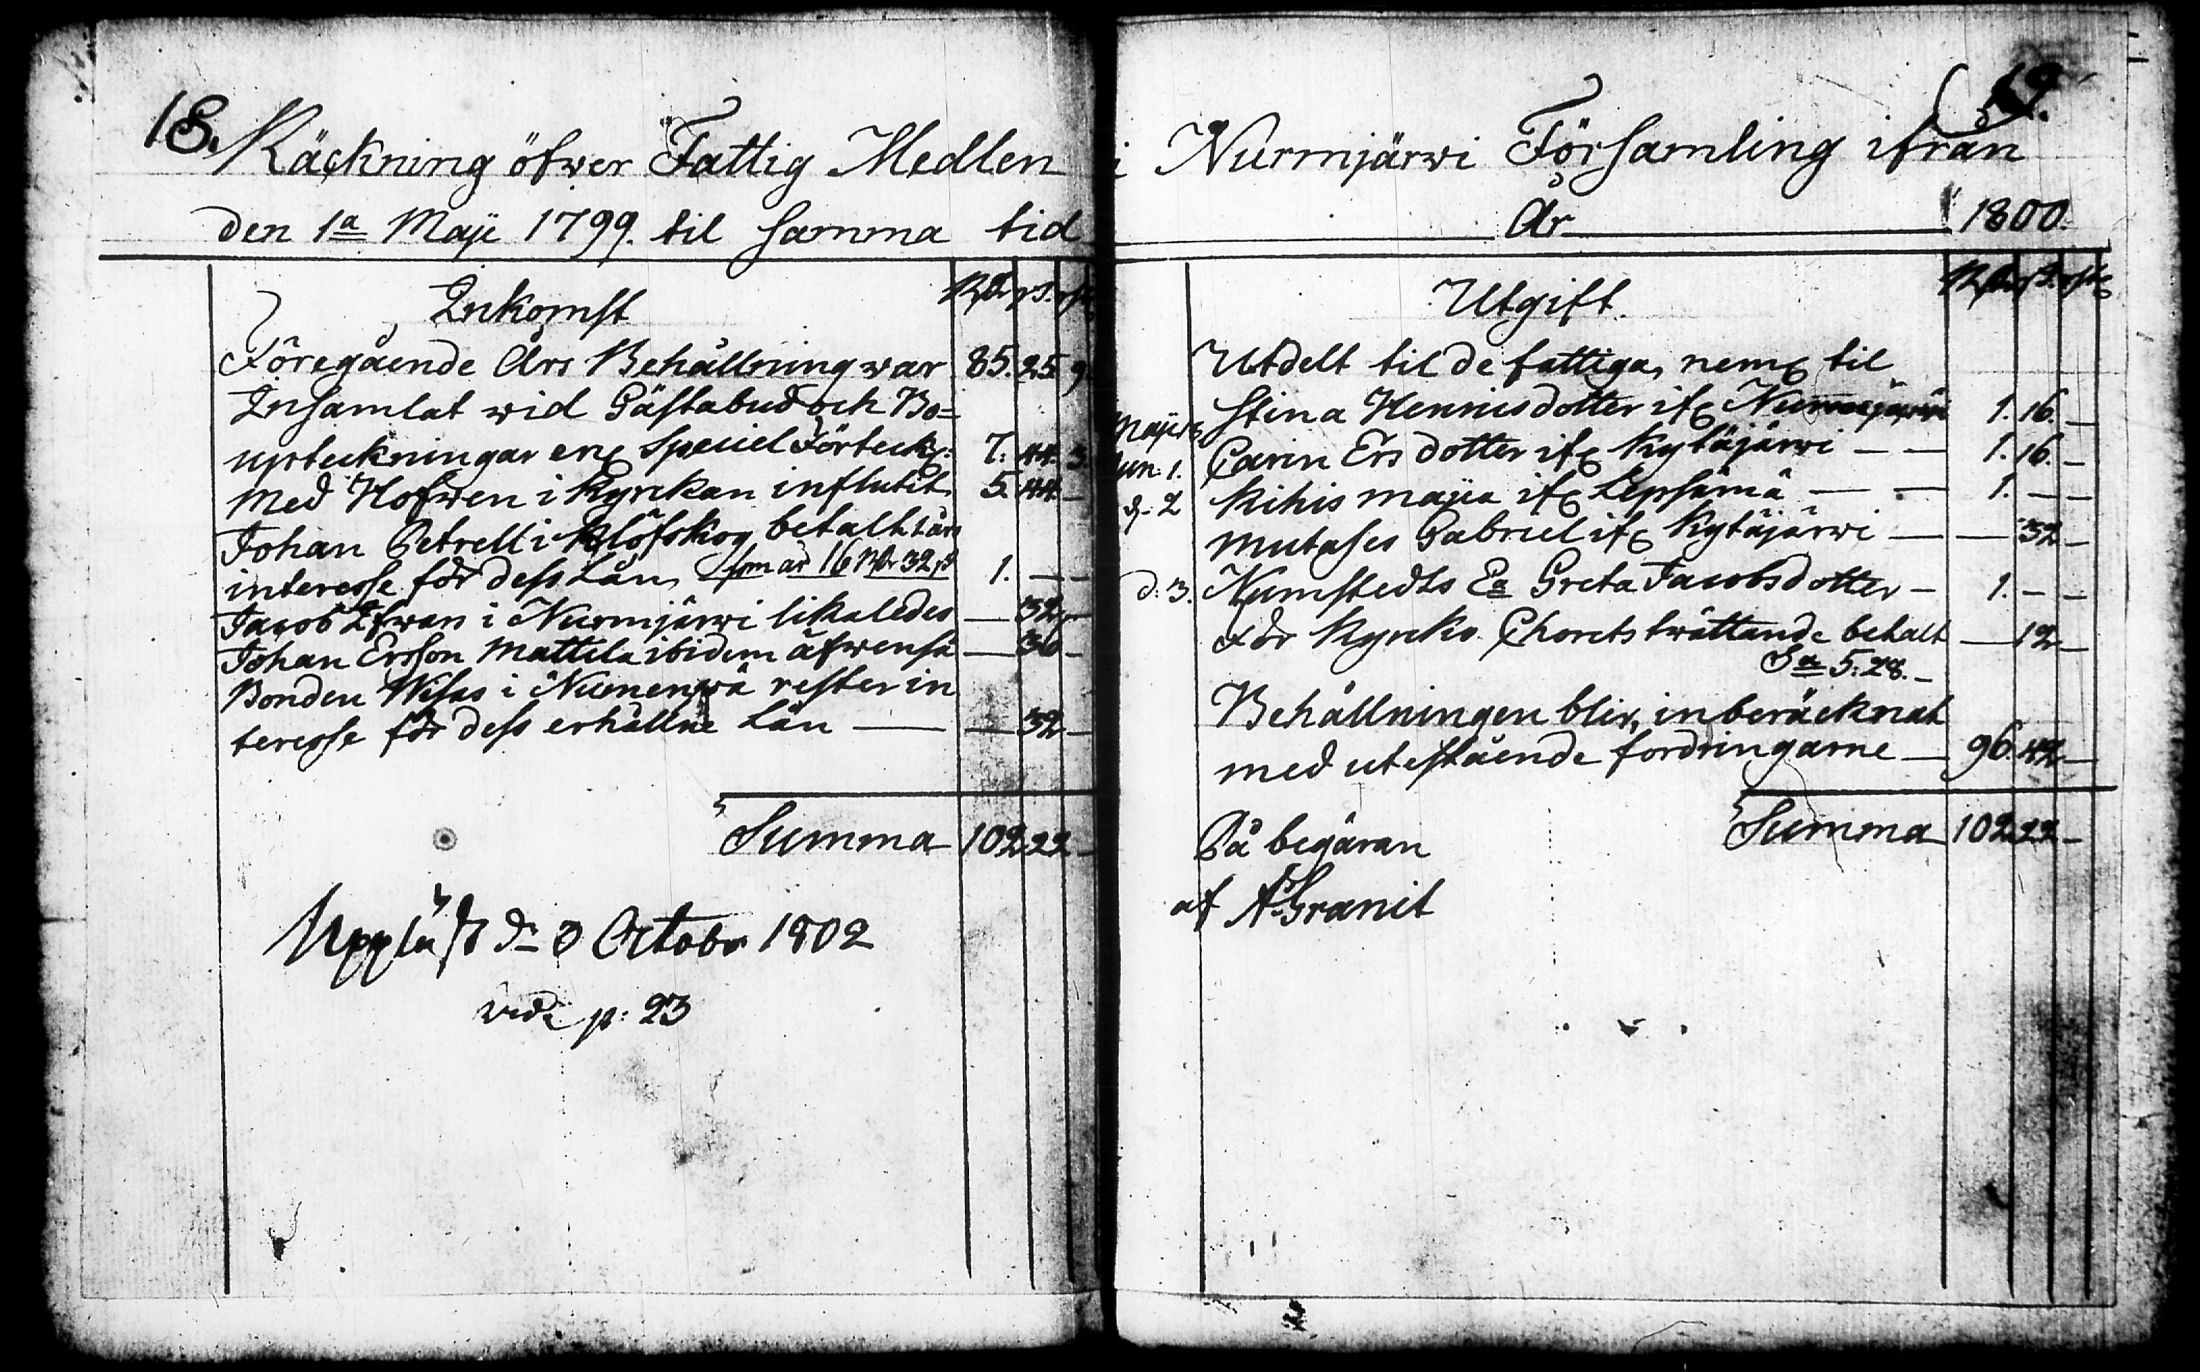 18.
Räckning öfwer Fattig Medlen
den 1a Maji 1799. til samma tid
Inkomst
Rdr ß. rst
Föregående Års Behållning war 85. 25. 9
Insamlat wid Gästabud och Bo=
upteckningar enl. speciel Förteckn: 7. 44. 3
Med Hofwen i Kyrckan influtit 5. 44. —
Johan Petrell i Klöfskog betalt Låns
interesse för dess Lån, som är 16 Rdr 32 ß 1. — —
Jacob Ifwars i Nurmjärwi likaledes — 32. —
Johan Ersson Mattila ibidem äfwenså — 36 —
Bonden Wisas i Numenpä rester in
teresse för dess erhållne Lån — — 32 —
Summa 102 22 —
Uppläst dn 3 October 1802
vide p: 23
19.
i Nurmjärwi Församling ifrån
År 1800.
Utgift.
Rdr ß. rst
Utdelt til de fattiga, neml. til
Maji Stina Hennisdotter ifr. Nurmijärwi 1. 16. —
Jun: 1. Carin Ersdotter ifr. Kytäjärwi — — 1. 16. —
d. 2 Kihis Majia ifr. Lepsämä — — 1. — —
Mutases Gabriel ifr. Kytäjärwi — — 32 —
d. 3. Numstedts Ea Greta Jacobsdotter — 1. — —
För Kyrcko Chorets twättande betalt — 12 —
Sa 5: 28. —
Behållningen blir, inberäcknat
med utestående fordringarne — 96. 42 —
Summa 102 22 —
På begäran
af A Granit